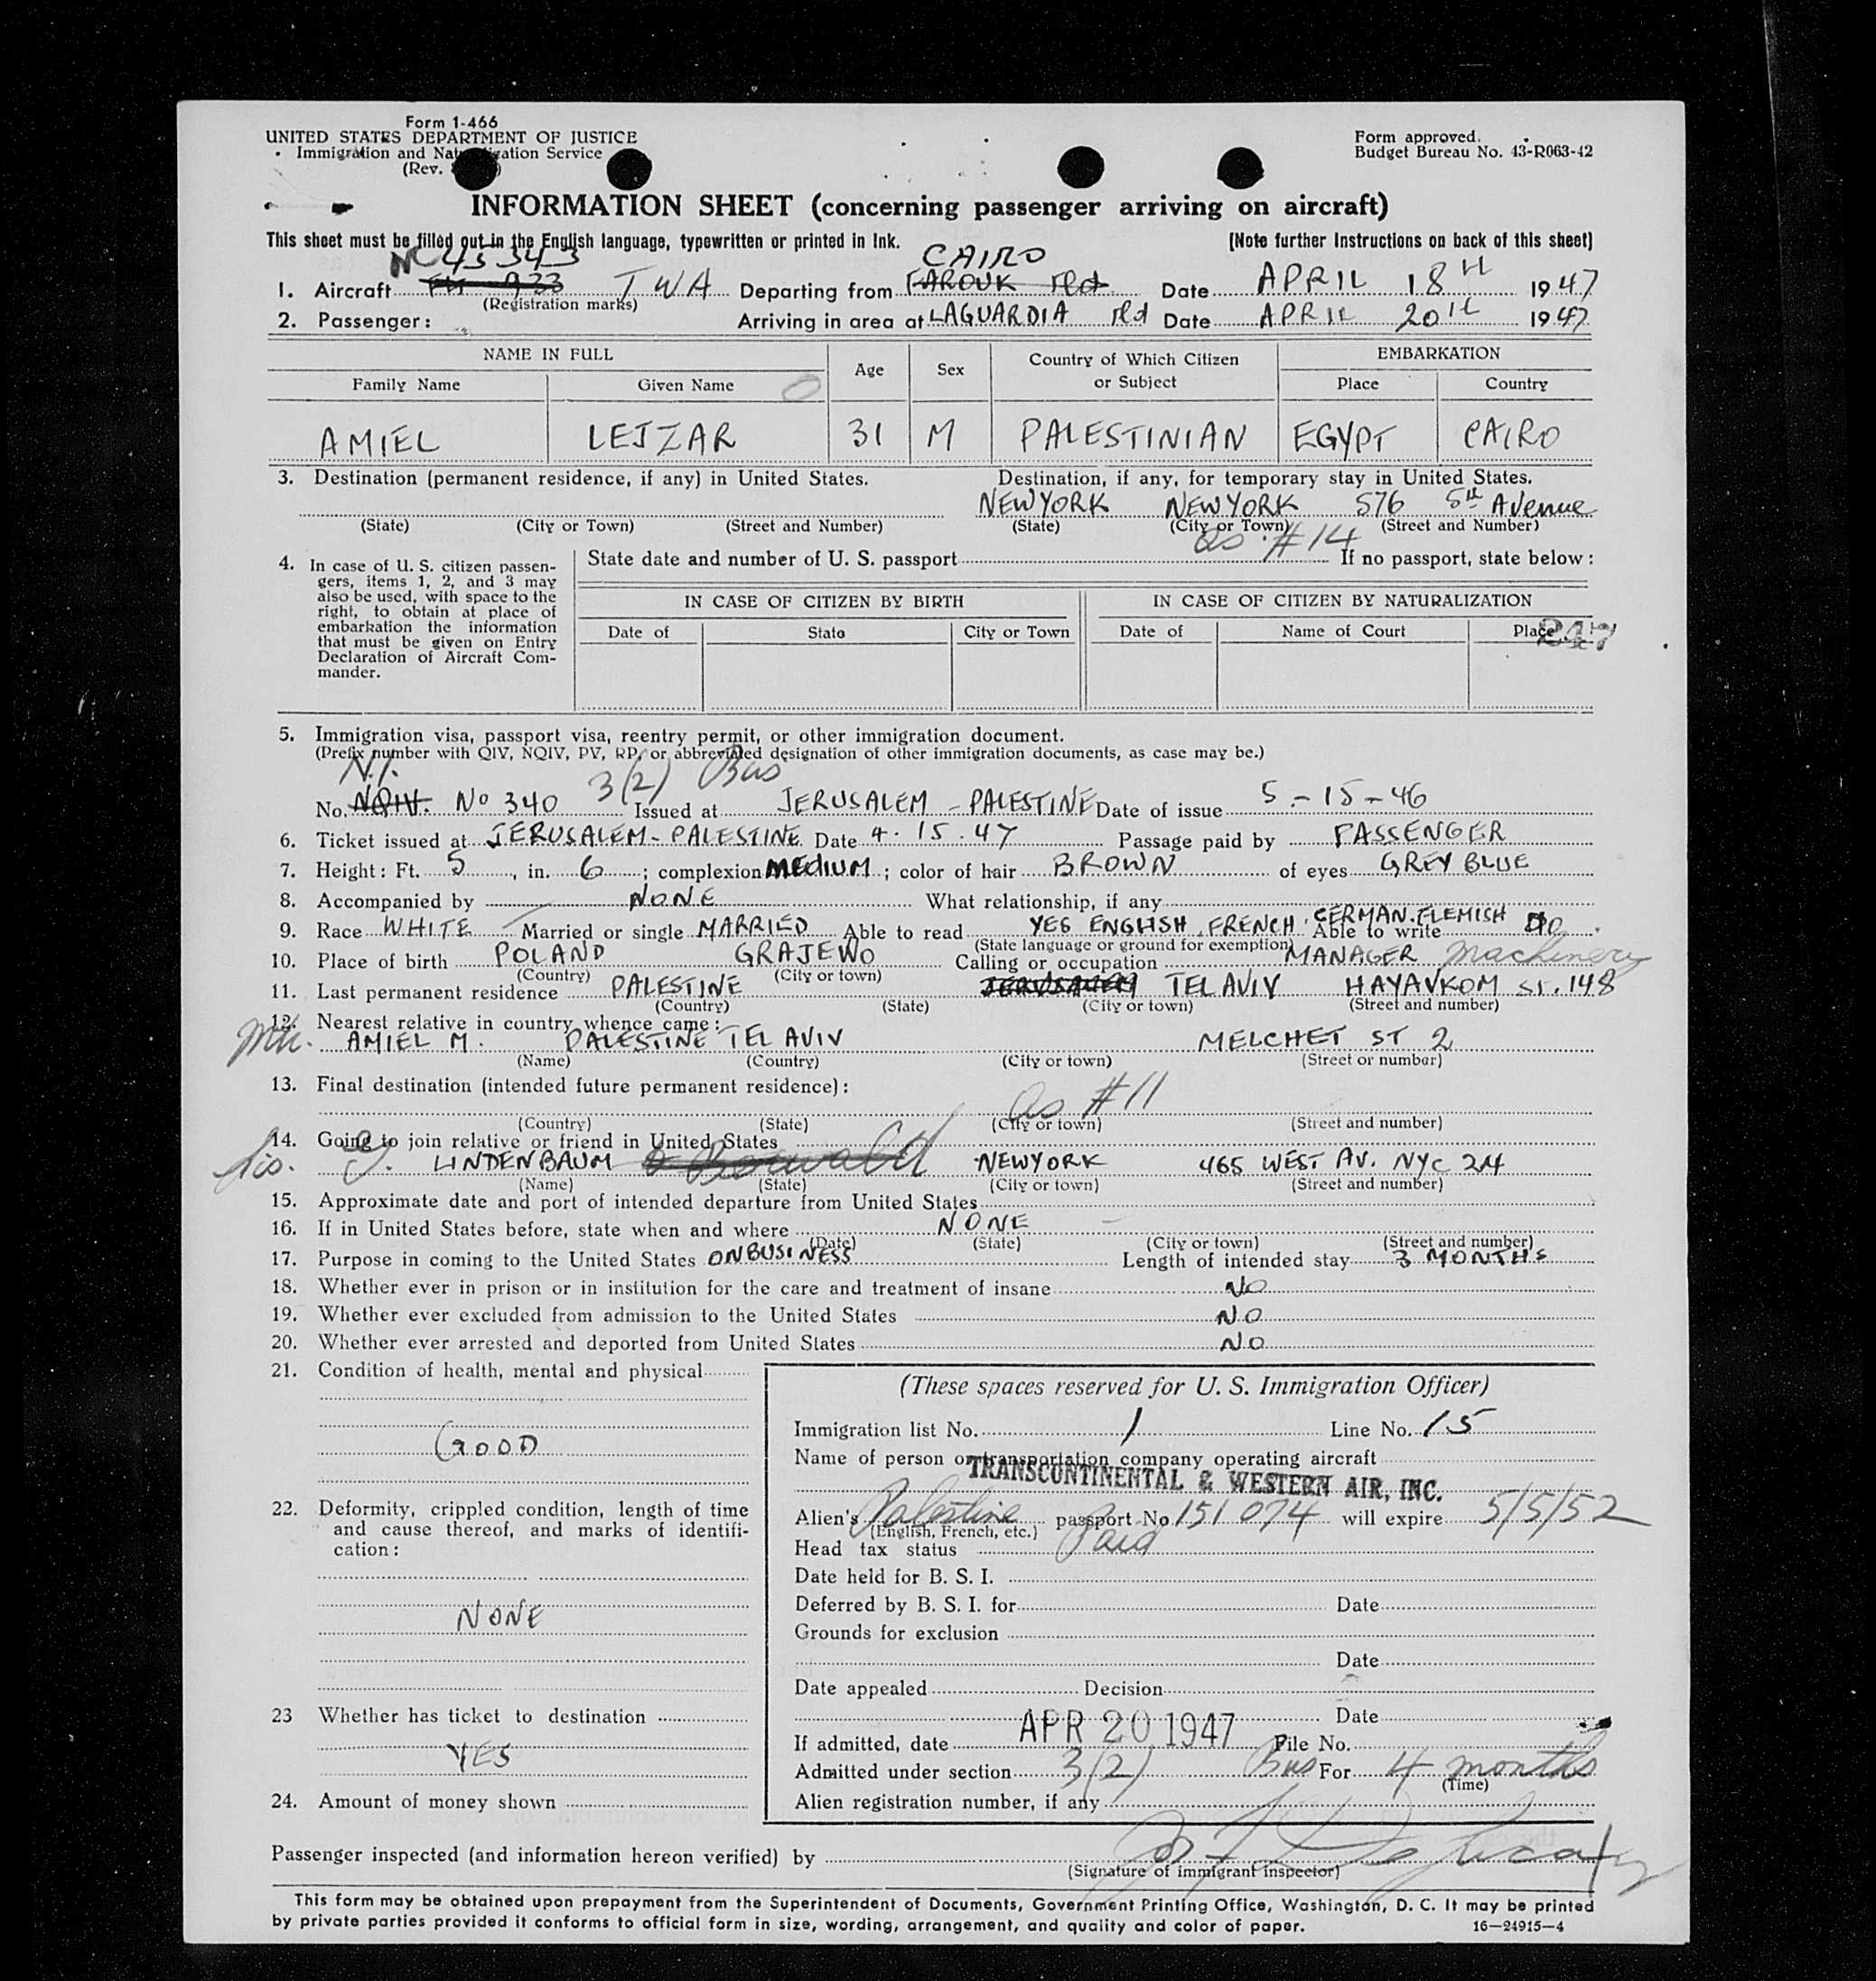 Form 1-466
UNITED STATES DEPARTMENT OF JUSTICE
Immigration and Naturalization Service
(Rev.
Form approved.
Budget Bureau No. 43-R063-42
INFORMATION SHEET (concerning passenger arriving on aircraft)
This sheet must be filled out in the English language, typewritten or printed in ink. (Note further Instructions on back of this sheet)
NC 45343 CAIRO
1. Aircraft TWA Departing from FAROUK Fld Date APRIL 18th 1947
(Registration marks)
2. Passenger: Arriving in area at LAGUARDIA Fld Date APRIL 20th 1947
NAME IN FULL Age Sex Country of Which Citizen or Subject EMBARKATION
Family Name Given Name Place Country
AMIEL LEJZAR 31 M PALESTINIAN EGYPT CAIRO
3. Destination (permanent residence, if any) in United States. Destination, if any, for temporary stay in United States.
NEWYORK NEWYORK 576 5th Avenue
(State) (City or Town) (Street and Number) (State) (City or Town) (Street and Number)
as #14
4. In case of U. S. citizen passen-
gers, items 1, 2, and 3 may
also be used, with space to the
right, to obtain at place of
embarkation the information
that must be given on Entry
Declaration of Aircraft Com-
mander.
State date and number of U. S. passport If no passport, state below:
IN CASE OF CITIZEN BY BIRTH IN CASE OF CITIZEN BY NATURALIZATION
Date of State City or Town Date of Name of Court Place
247
5. Immigration visa, passport visa, reentry permit, or other immigration document.
(Prefix number with QIV, NQIV, PV, RP, or abbreviated designation of other immigration documents, as case may be.)
N.I. 3(2) Bus
No. NQIV. No 340 Issued at JERUSALEM - PALESTINE Date of issue 5-15-46
6. Ticket issued at JERUSALEM-PALESTINE Date 4.15.47 Passage paid by PASSENGER
7. Height: Ft. 5, in. 6; complexion MEDIUM; color of hair BROWN of eyes GREY BLUE
8. Accompanied by NONE What relationship, if any
9. Race WHITE Married or single MARRIED Able to read YES ENGLISH, FRENCH, GERMAN. FLEMISH Able to write do
(State language or ground for exemption)
10. Place of birth POLAND GRAJEWO Calling or occupation MANAGER Machinery
(Country) (City or town)
11. Last permanent residence PALESTINE JERUSALEM TEL AVIV HAYAVKOM ST. 148
(Country) (State) (City or town) (Street and number)
12. Nearest relative in country whence came:
AMIEL M. PALESTINE TEL AVIV MELCHET ST 2
(Name) (Country) (City or town) (Street or number)
13. Final destination (intended future permanent residence):
as #11
(Country) (State) (City or town) (Street and number)
14. Going to join relative or friend in United States
sis. LINDENBAUM NEWYORK 465 WEST AV. NYC 24
(Name) (State) (City or town) (Street and number)
15. Approximate date and port of intended departure from United States
16. If in United States before, state when and where NONE
(Date) (State) (City or town) (Street and number)
17. Purpose in coming to the United States ON BUSINESS Length of intended stay 3 MONTHS
18. Whether ever in prison or in institution for the care and treatment of insane NO
19. Whether ever excluded from admission to the United States NO
20. Whether ever arrested and deported from United States NO
21. Condition of health, mental and physical
GOOD
22. Deformity, crippled condition, length of time
and cause thereof, and marks of identifi-
cation:
NONE
23 Whether has ticket to destination
YES
24. Amount of money shown
(These spaces reserved for U. S. Immigration Officer)
Immigration list No. 1 Line No. 15
Name of person or transportation company operating aircraft
TRANSCONTINENTAL & WESTERN AIR, INC.
Alien's Palestine passport No 151074 will expire 5/5/52
(English, French, etc.)
Head tax status Paid
Date held for B. S. I.
Deferred by B. S. I. for Date
Grounds for exclusion
Date
Date appealed Decision
Date
If admitted, date APR 20 1947 File No.
Admitted under section 3(2) Bus For 4 months
(Time)
Alien registration number, if any
Passenger inspected (and information hereon verified) by
(Signature of immigrant inspector)
This form may be obtained upon prepayment from the Superintendent of Documents, Government Printing Office, Washington, D. C. It may be printed
by private parties provided it conforms to official form in size, wording, arrangement, and quality and color of paper. 16—24915-4